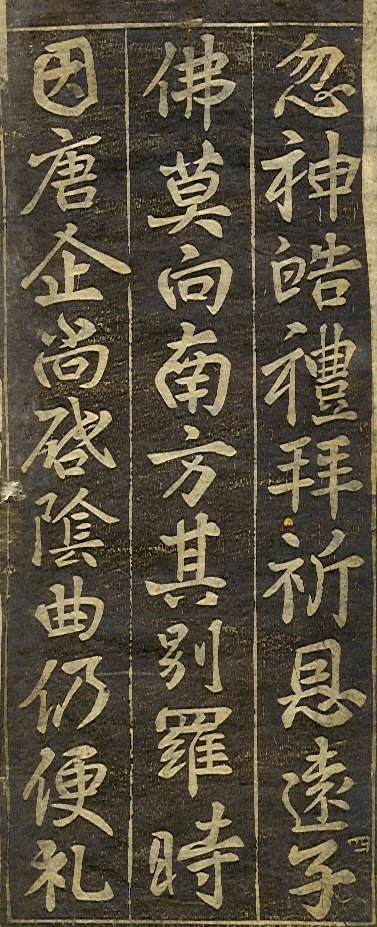 忽神皓禮拜祈恩遠子
四
佛莫向南方其別羅時
因唐企尚啓陰曲仍便礼